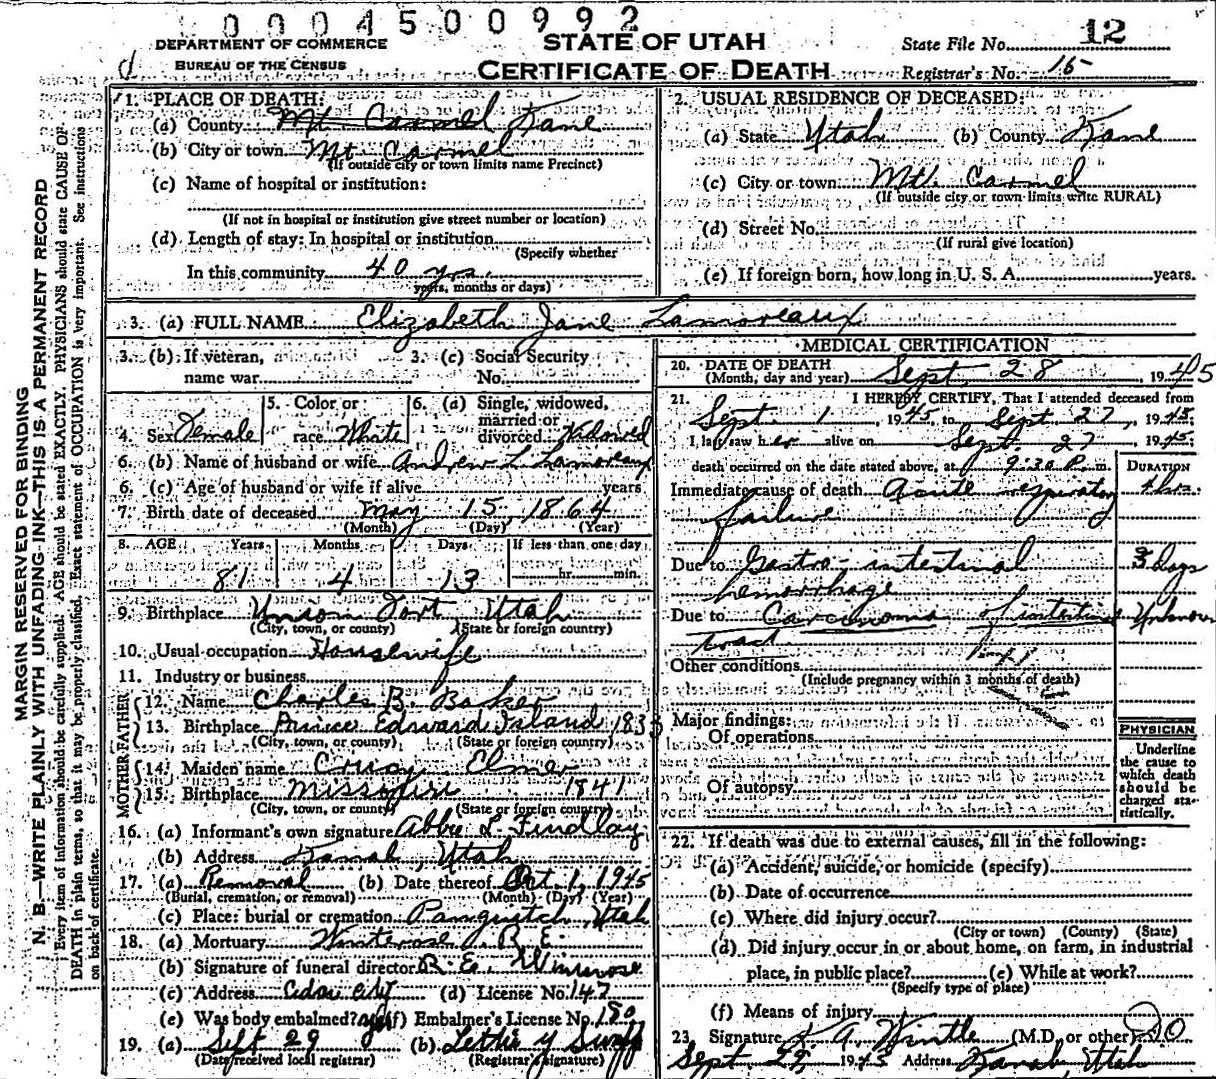 0004500992
DEPARTMENT OF COMMERCE
BUREAU OF THE CENSUS
STATE OF UTAH
CERTIFICATE OF DEATH
State File No. 12
Registrar's No. 15
MARGIN RESERVED FOR BINDING
N. B.—WRITE PLAINLY WITH UNFADING INK—THIS IS A PERMANENT RECORD
Every item of information should be carefully supplied. AGE should be stated EXACTLY. PHYSICIANS should state CAUSE OF
DEATH in plain terms, so that it may be properly classified. Exact statement of OCCUPATION is very important. See instructions
on back of certificate.
1. PLACE OF DEATH:
(a) County Mt Carmel Kane
(b) City or town Mt Carmel
(If outside city or town limits name Precinct)
(c) Name of hospital or institution:
(If not in hospital or institution give street number or location)
(d) Length of stay: In hospital or institution
(Specify whether
In this community 40 yrs.
years, months or days)
2. USUAL RESIDENCE OF DECEASED:
(a) State Utah (b) County Kane
(c) City or town Mt. Carmel
(If outside city or town limits write RURAL)
(d) Street No.
(If rural give location)
(e) If foreign born, how long in U. S. A. years.
3. (a) FULL NAME Elizabeth Jane Lamoreaux
3. (b) If veteran, name war
3. (c) Social Security No.
4. Sex Female
5. Color or race White
6. (a) Single, widowed, married or divorced Widowed
6. (b) Name of husband or wife Andrew L. Lamoreaux
6. (c) Age of husband or wife if alive years
7. Birth date of deceased May 15, 1864
(Month) (Day) (Year)
8. AGE Years Months Days If less than one day
81 4 13 hr. min.
9. Birthplace Union Fort Utah
(City, town, or county) (State or foreign country)
10. Usual occupation Housewife
11. Industry or business
FATHER
12. Name Charles B. Baker
13. Birthplace Prince Edward Island 1833
(City, town, or county) (State or foreign country)
MOTHER
14. Maiden name Elmer
15. Birthplace Missouri 1841
(City, town, or county) (State or foreign country)
16. (a) Informant's own signature Abbie L. Findlay
(b) Address Kanab, Utah
17. (a) Removal (b) Date thereof Oct. 1, 1945
(Burial, cremation, or removal) (Month) (Day) (Year)
(c) Place: burial or cremation Panguitch, Utah
18. (a) Mortuary Winterose R. E.
(b) Signature of funeral director R. E. Winterose
(c) Address Cedar City (d) License No. 147
(e) Was body embalmed? yes (f) Embalmer's License No. 180
19. (a) Sept 29 (b)
(Date received local registrar) (Registrar's signature)
MEDICAL CERTIFICATION
20. DATE OF DEATH
(Month, day and year) Sept. 28, 1945
21. I HEREBY CERTIFY, That I attended deceased from
Sept. 1, 1945, to Sept 27, 1945.
I last saw her alive on Sept 27 1945.
death occurred on the date stated above, at 9:30 P. m.
DURATION
Immediate cause of death Acute respiratory 4 hrs.
failure
Due to Gastro-intestinal 3 days
hemorrhage
Due to Carcinoma of intestinal Unknown
tract
Other conditions
(Include pregnancy within 3 months of death)
Major findings:
Of operations
Of autopsy
PHYSICIAN
Underline
the cause to
which death
should be
charged sta-
tistically.
22. If death was due to external causes, fill in the following:
(a) Accident, suicide, or homicide (specify)
(b) Date of occurrence
(c) Where did injury occur?
(City or town) (County) (State)
(d) Did injury occur in or about home, on farm, in industrial
place, in public place? (e) While at work?
(Specify type of place)
(f) Means of injury
23. Signature A. Wintle (M.D. or other) DO
Sept. 29, 1945 Address Kanab, Utah